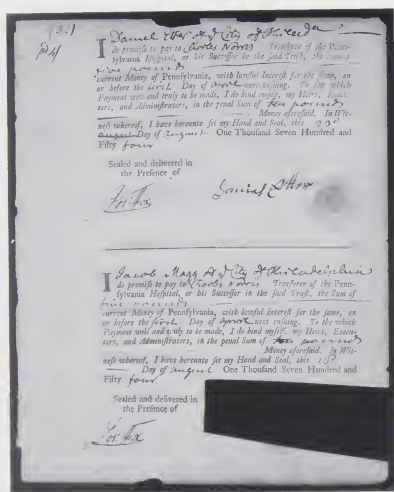 I Daniel of City of Philada
do promise to pay to Charles Norris Treasurer of the Penn-
sylvania Hospital, or his Successor in the said Trust, the
five pounds
current Money of Pennsylvania, with lawful Interest for the same, on
or before the first Day of April next ensuing. To the which
Payment well and truly to be made, I do bind myself, my Heirs, Execu-
tors, and Administrators, in the penal Sum of ten pounds
Money aforesaid. In Wit-
ness whereof, I have hereunto set my Hand and Seal, this 23d
august Day of august One Thousand Seven Hundred and
Fifty four
Sealed and delivered in
the Presence of
Jos: Fox
I Jacob Magg of City of Philadelphia
do promise to pay to Charles Norris Treasurer of the Penn-
sylvania Hospital, or his Successor in the said Trust, the Sum of
five pounds
current Money of Pennsylvania, with lawful Interest for the same, on
or before the first Day of April next ensuing. To the which
Payment well and truly to be made, I do bind myself, my Heirs, Execu-
tors, and Administrators, in the penal Sum of ten pounds
Money aforesaid. In Wit-
ness whereof, I have hereunto set my Hand and Seal, this
Day of august One Thousand Seven Hundred and
Fifty four
Sealed and delivered in
the Presence of
Jos: Fox